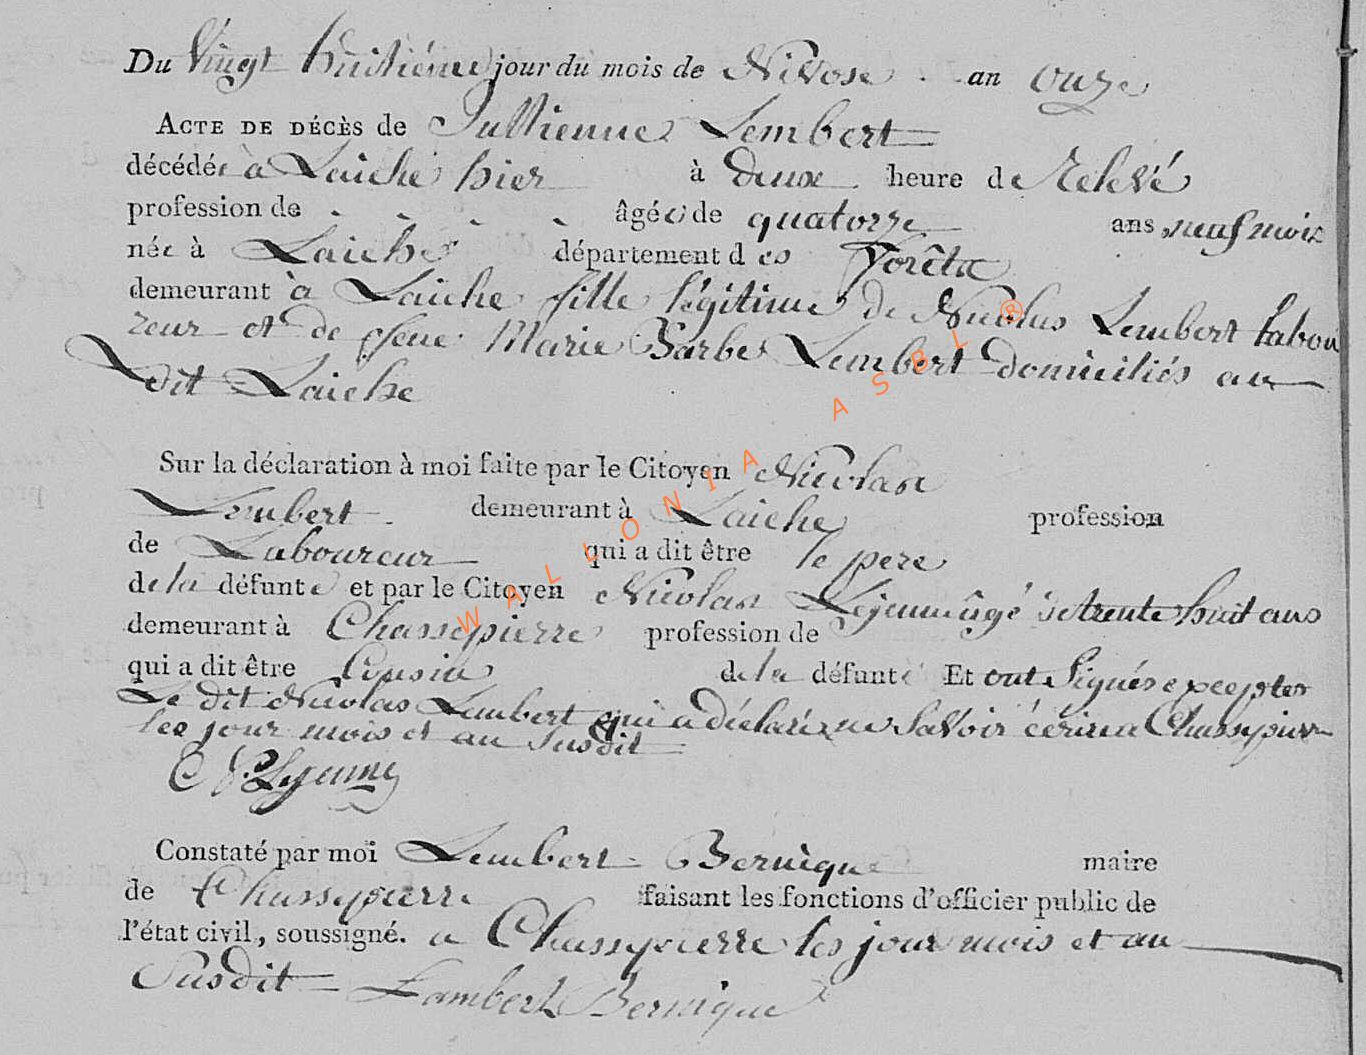 Du Vingt huitiéme jour du mois de Nivose an onze
ACTE DE DÉCÈS de Jullienne Lembert
décédée à Laiche hier à deux heure de relevé
profession de - - - - âgée de quatorze ans neuf mois
née à Laiche département des Forêts
demeurant à Laiche fille légitime de Nicolas Lembert labou
reur et de feue Marie Barbe Lembert domiciliés au
dit Laiche
Sur la déclaration à moi faite par le Citoyen Nicolas
Lembert demeurant à Laiche profession
de Laboureur qui a dit être le pere
de la défunte et par le Citoyen Nicolas Lejeune âgé de trente huit ans
demeurant à Chassepierre profession de
qui a dit être Cousin de la défunte Et ont Signés excepter
Le dit Nicolas Lembert qui a déclaré ne Savoir écrire a Chassepierre
les jour mois et an susdit
N Lejeune
Constaté par moi Lembert Bernique maire
de Chassepierre faisant les fonctions d'officier public de
l'état civil, soussigné. a Chassepierre les jour mois et an
Susdit Lambert Bernique
WALLONIA ASBL ®